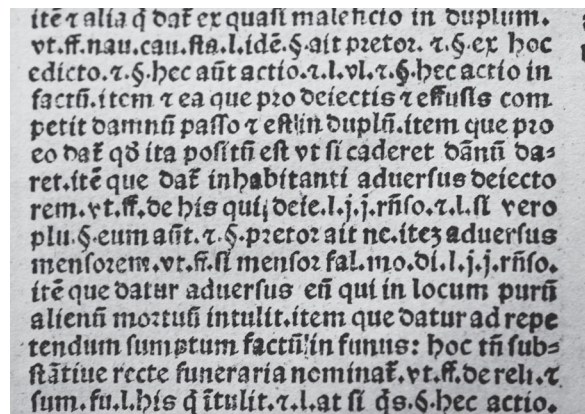 itē ⁊ alia q̄ dat̄ ex quasi maleficio in duplum.
vt.ff.nau.cau.sta.l.idē.§.ait pretor. ⁊.§.ex hoc
edicto.⁊.§.hec aūt actio.⁊.l.vl.⁊.§.hec actio in
factū.item ⁊ ea que pro deiectis ⁊ effusis com
petit damnū passo ⁊ est in duplū.item que pro
eo dat̄ qđ ita positū est vt si caderet dānū da⸗
ret.itē que dat̄ inhabitanti aduersus deiecto
rem.vt.ff.de his qui deie.l.j.j.rn̄so.⁊.l.si vero
plu.§.eum aūt.⁊.§.pretor ait ne.iteꝫ aduersus
mensorem.vt.ff.si mensor fal.mo.di.l.j.j.rn̄so.
itē que datur aduersus eū qui in locum purū
alienū mortuū intulit.item que datur ad repe
tendum sumptum factū in funus: hoc tn̄ sub⸗
stātiue recte funeraria nominat̄.vt.ff.de reli.⁊
sum.fu.l.his q̄ ītulit.⁊.l.at si q̄s.§.hec actio.